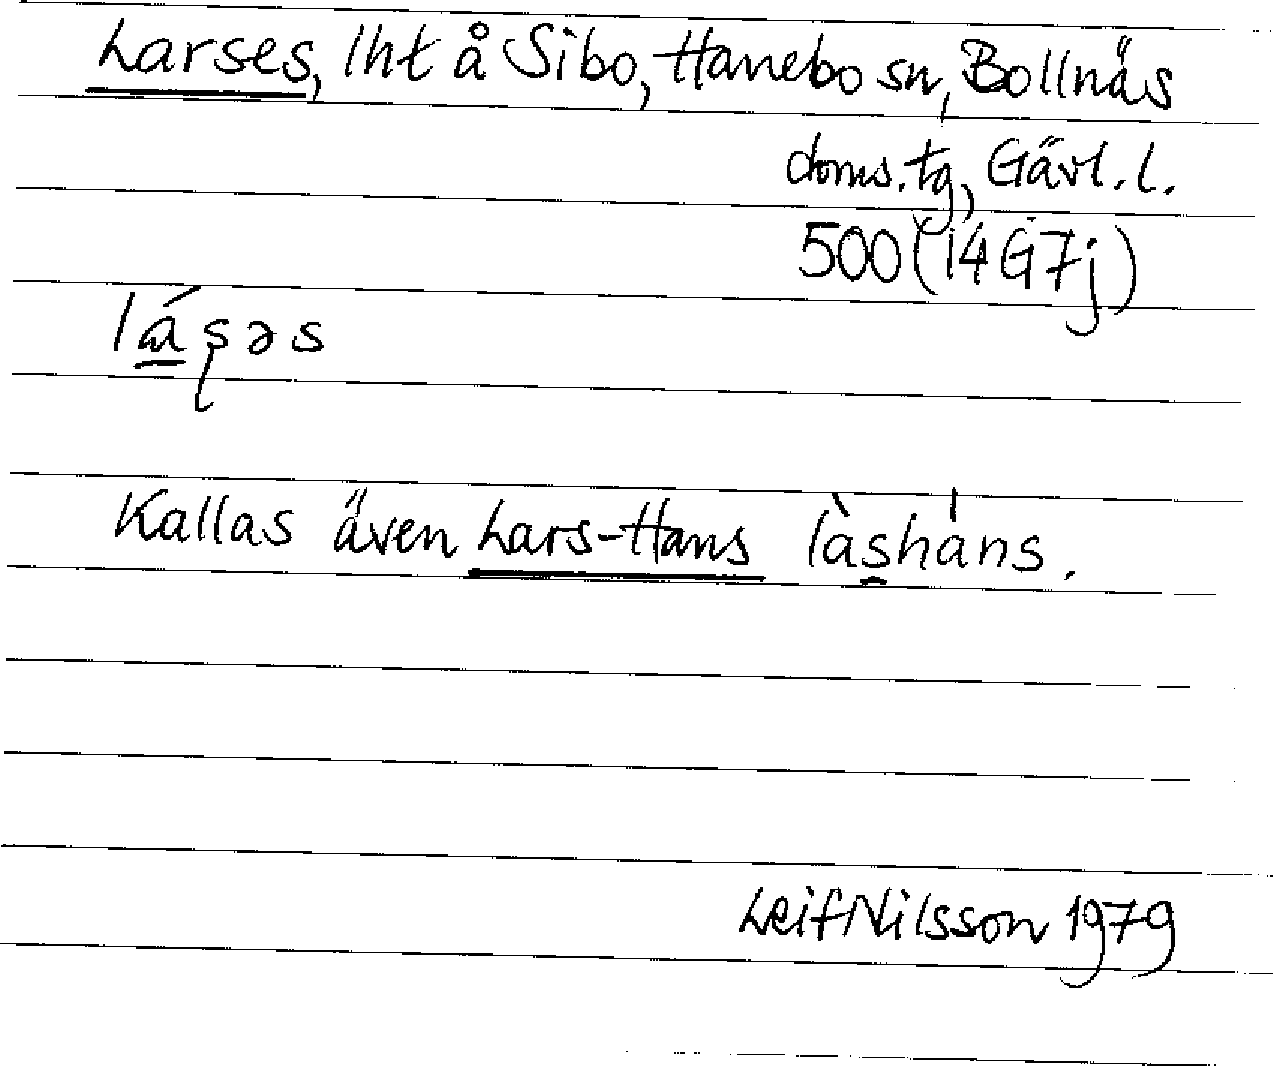 Larses, lht å Sibo, Hanebo sn, Bollnäs
doms. tg, Gävl. l.
500 (14G7j)
lá̱ʂəs
Kallas även Lars-Hans làs̱háns.
Leif Nilsson 1979